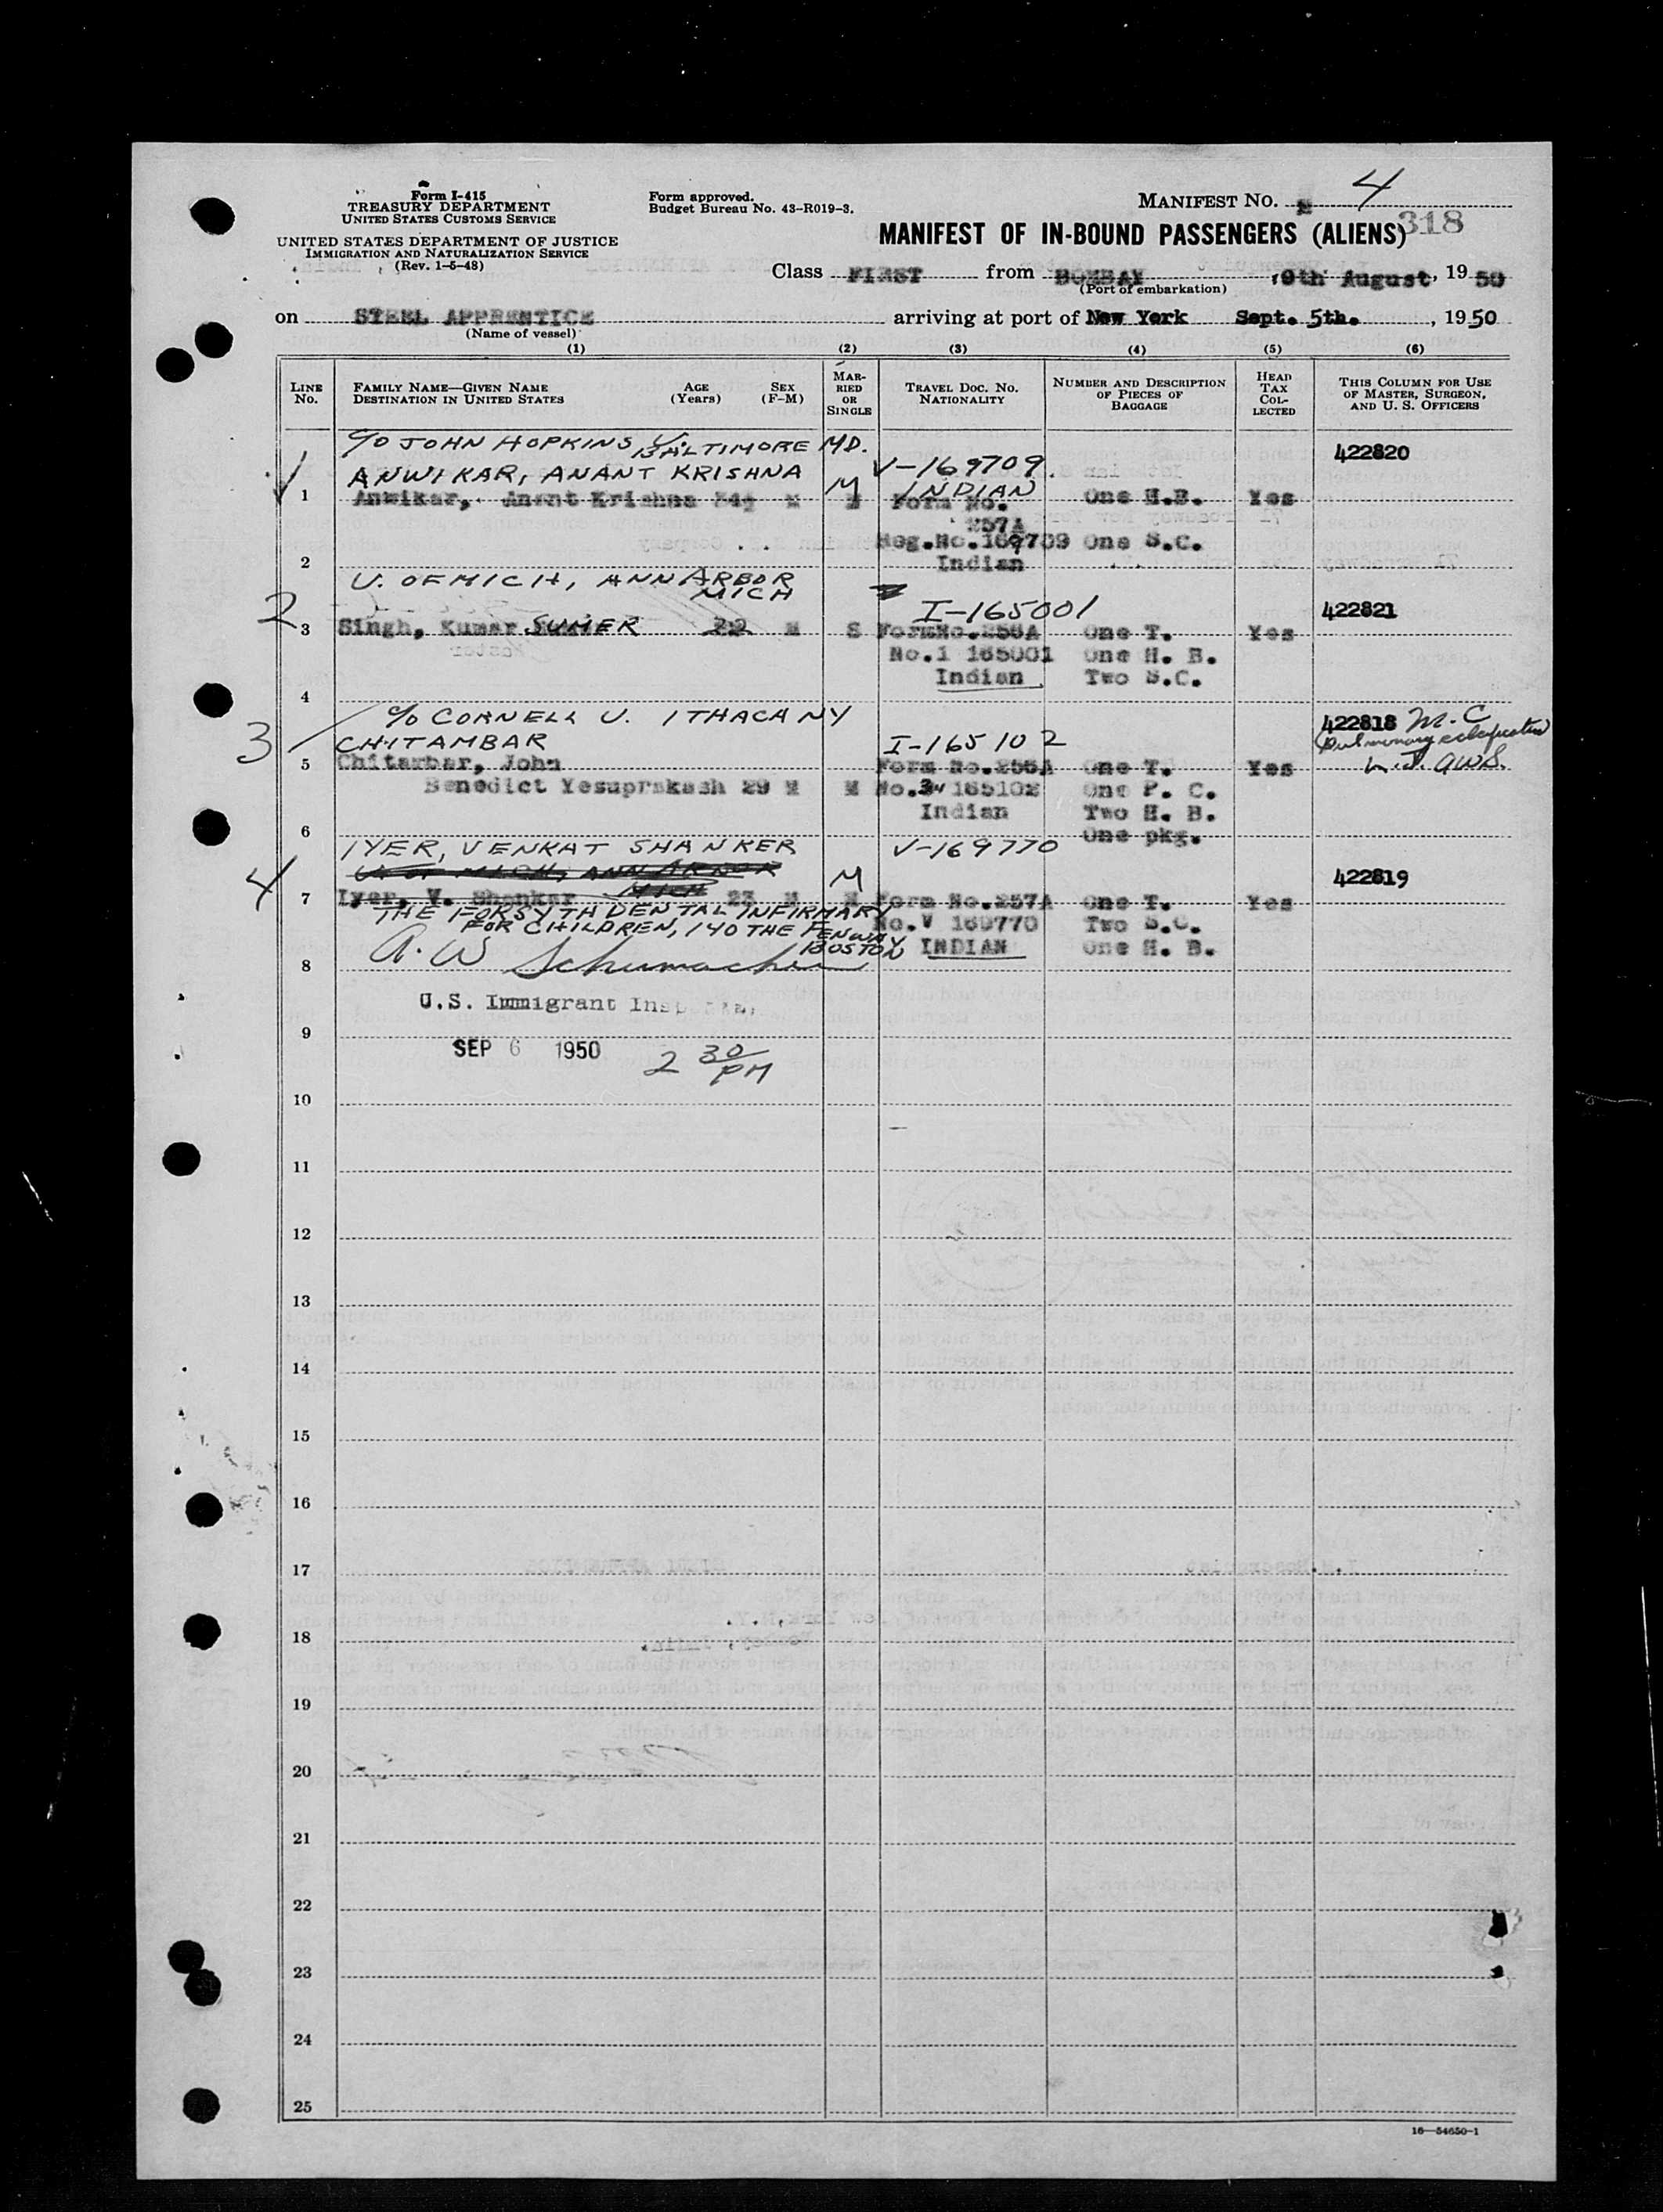 Form I-415
TREASURY DEPARTMENT
UNITED STATES CUSTOMS SERVICE
UNITED STATES DEPARTMENT OF JUSTICE
IMMIGRATION AND NATURALIZATION SERVICE
(Rev. 1-5-48)
Form approved.
Budget Bureau No. 43-R019-3.
MANIFEST NO. 4
318
MANIFEST OF IN-BOUND PASSENGERS (ALIENS)
Class FIRST from BOMBAY, 9th August, 1950
(Port of embarkation)
on STEEL APPRENTICE arriving at port of New York Sept. 5th., 1950
(Name of vessel)
(1) (2) (3) (4) (5) (6)
LINE No. FAMILY NAME—GIVEN NAME DESTINATION IN UNITED STATES AGE (Years) SEX (F-M) MARRIED OR SINGLE TRAVEL DOC. NO. NATIONALITY NUMBER AND DESCRIPTION OF PIECES OF BAGGAGE HEAD TAX COLLECTED THIS COLUMN FOR USE OF MASTER, SURGEON, AND U. S. OFFICERS
C/O JOHN HOPKINS U. BALTIMORE MD. 422820
ANWIKAR, ANANT KRISHNA V-169709
M INDIAN
1 Anwikar, Anant Krishna M Form No. One H.B. Yes
257A
Reg.No.169709 One S.C.
2 Indian
U. OF MICH, ANN ARBOR
MICH
2 I-165001 422821
3 Singh, Kumar SUMER 22 M S Form No.256A One T. Yes
No.I 165001 One H. B.
Indian Two S.C.
4
C/O CORNELL U. ITHACA NY 422818 M.C
3 CHITAMBAR I-165102 Pulmonary
5 Chitambar, John Form No.256A One T. Yes L.J. AWS.
Benedict Yesuprakash 29 M M No. 165102 One P. C.
Indian Two H. B.
6 One pkg.
IYER, VENKAT SHANKER V-169770
U. OF MICH, ANN ARBOR
MICH
4 M 422819
7 Iyer, V. Shankar 23 M M Form No.257A One T. Yes
THE FORSYTH DENTAL INFIRMARY No.V 169770 Two S.C.
FOR CHILDREN, 140 THE FENWAY
BOSTON INDIAN One H. B.
A. W Schumacher
8
U.S. Immigrant Inspector
9
SEP 6 1950 2 30 PM
10
11
12
13
14
15
16
17
18
19
20
21
22
23
24
25
16—54650-1